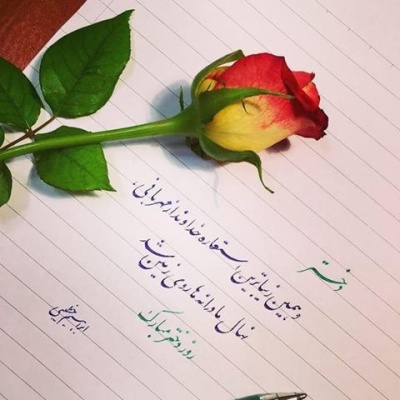 دختر
و همین زیباترین استعاره خداوند از مهربانی،
نهال مادرانه ها روی زمین شد
روز دختر مبارک
ابراهیم